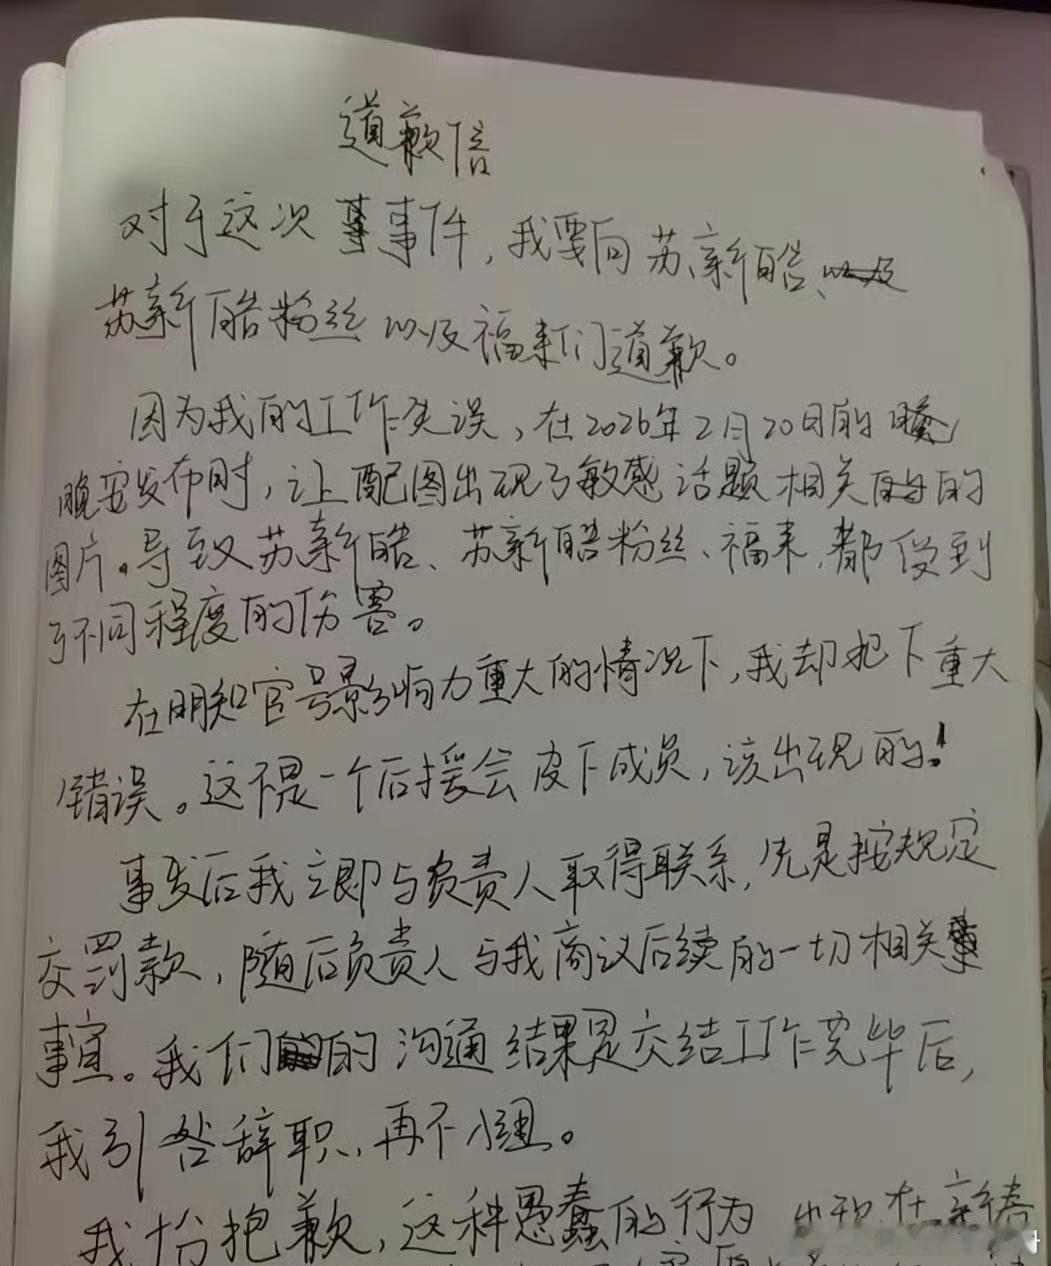 道歉信
对于这次事事件，我要向苏新皓、以及
苏新皓粉丝以及福来们道歉。
因为我的工作失误，在2026年2月20日的晚
晚安发布时，让配图出现了敏感话题相关的的
图片。导致苏新皓、苏新皓粉丝、福来，都受到
了不同程度的伤害。
在明知官号影响力重大的情况下，我却犯下重大
错误。这不是一个后援会皮下成员，该出现的！
事发后我立即与负责人取得联系，先是按规定
交罚款，随后负责人与我商议后续的一切相关事
事宜。我们的沟通结果是交结工作完毕后，
我引咎辞职，再不
我十分抱歉，这种愚蠢的行为出现在新